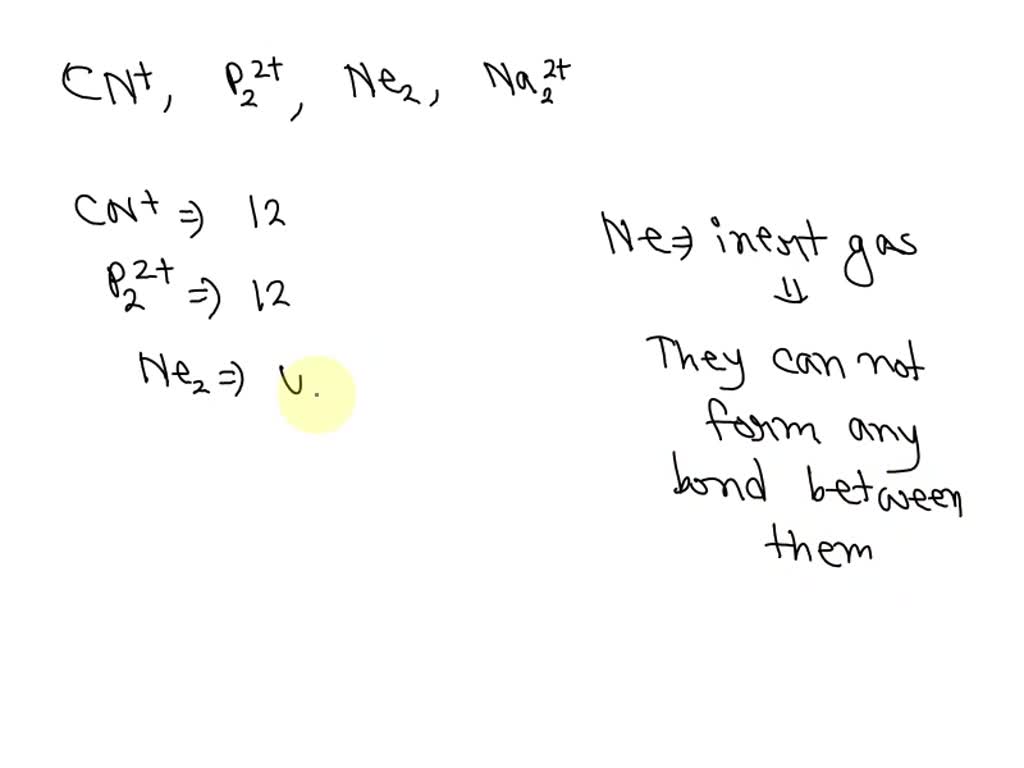 CN⁺, P₂²⁺, Ne₂, Na₂²⁺
CN⁺ ⇒ 12
P₂²⁺ ⇒ 12
Ne₂ ⇒
Ne ⇒ inert gas
⇓
They can not
form any
bond between
them